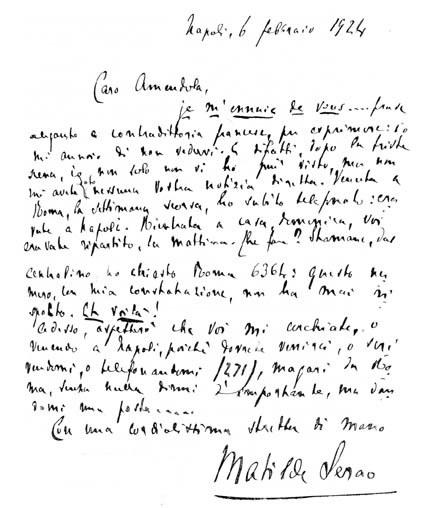 Napoli, 6 febbraio 1924
Caro Amendola,
je m'ennuie de vous.... frase
elegante e contraddittoria francese, per esprimere: io
mi annoio di non vedervi. E difatti, dopo la triste
scena, io non solo non vi ho più visto, ma non
mi avete dato nessuna vostra notizia diretta. Venuta a
Roma, la settimana scorsa, ho subito telefonato: era-
vate a Napoli. Rientrata a casa, domenica, voi
eravate ripartito, la mattina. Che fare? Stamane, dal
centralino ho chiesto Roma 6364: questo nu-
mero, con mia costernazione, non ha mai ri-
sposto. Eh voilà!
Adesso, aspetterò che voi mi cerchiate, o
venendo a Napoli, poiché dovrete venirci, o scri-
vendomi, o telefonandomi (271), magari da Ro-
ma, senza nulla dirmi d'importante, ma dan-
domi una posta.....
Con una cordialissima stretta di mano
Matilde Serao